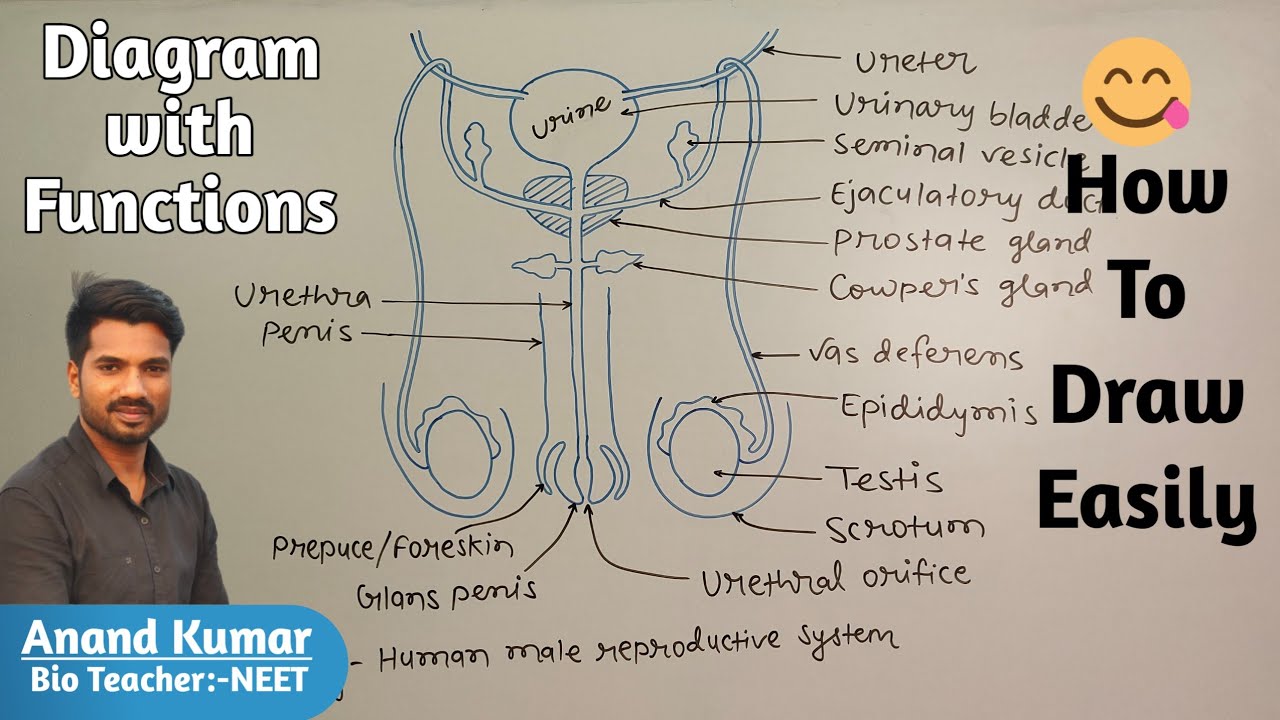 Diagram
with
Functions
Ureter
Urine
Urinary bladde
Seminal vesicle
Ejaculatory duct
Prostate gland
Cowper's gland
Urethra
Penis
Vas deferens
Epididymis
Testis
Scrotum
Prepuce/Foreskin
Glans penis
Urethral orifice
- Human male reproductive system
How
To
Draw
Easily
Anand Kumar
Bio Teacher:-NEET